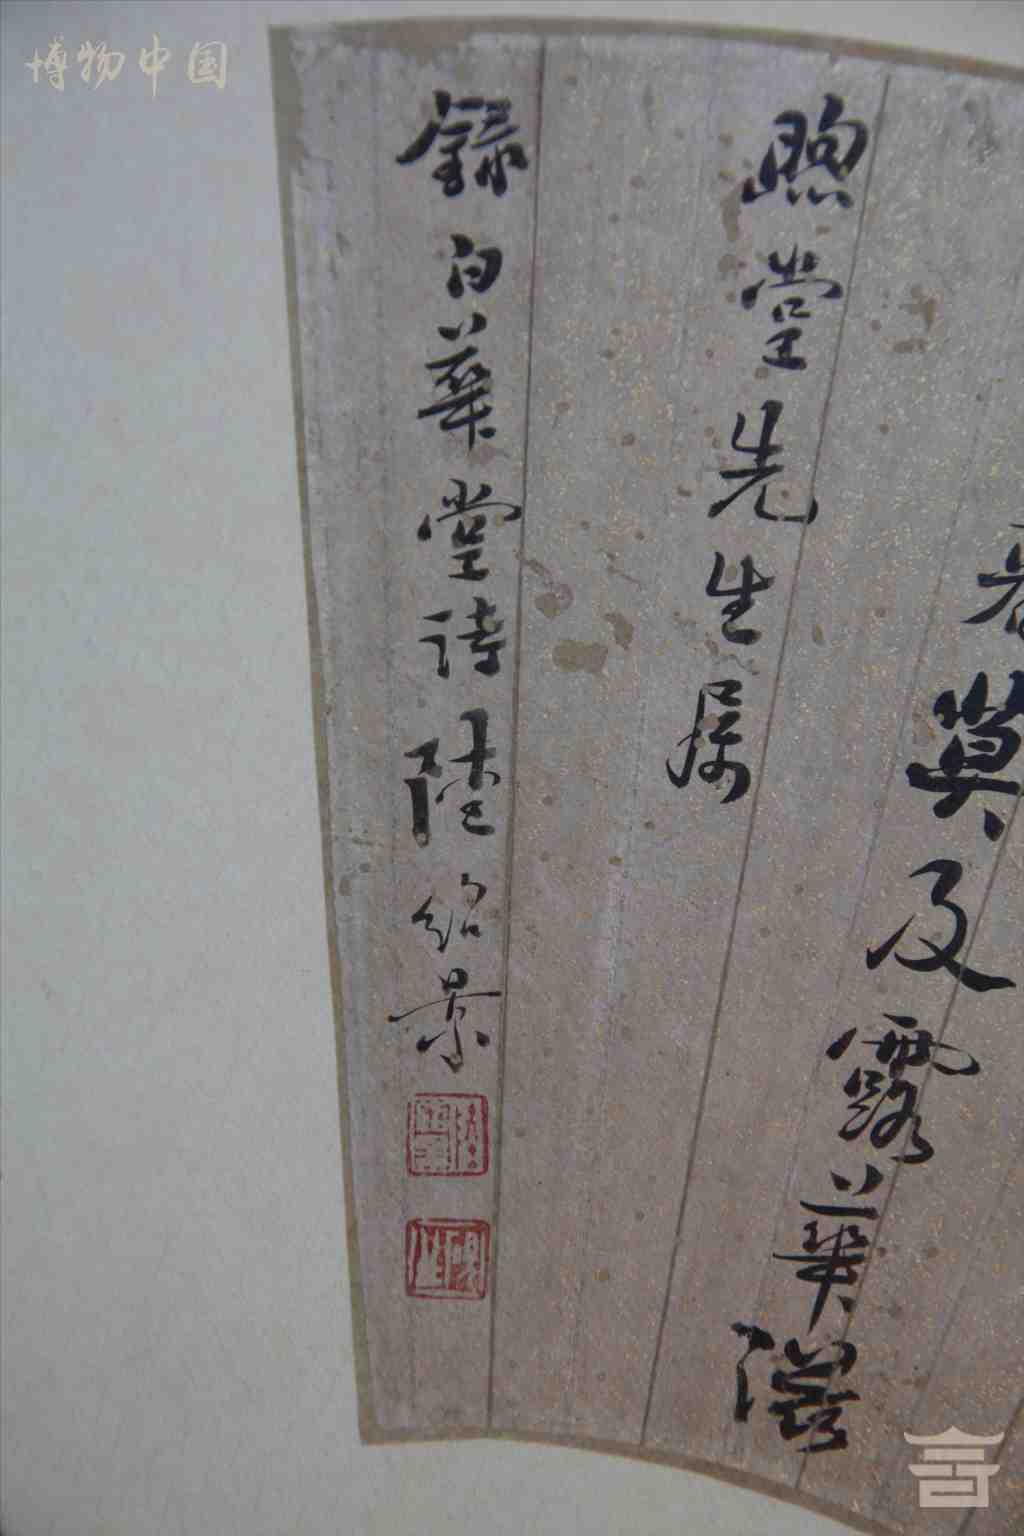 博物中国
莫及露華滋
煦堂先生属
錄白華堂詩陸紹景